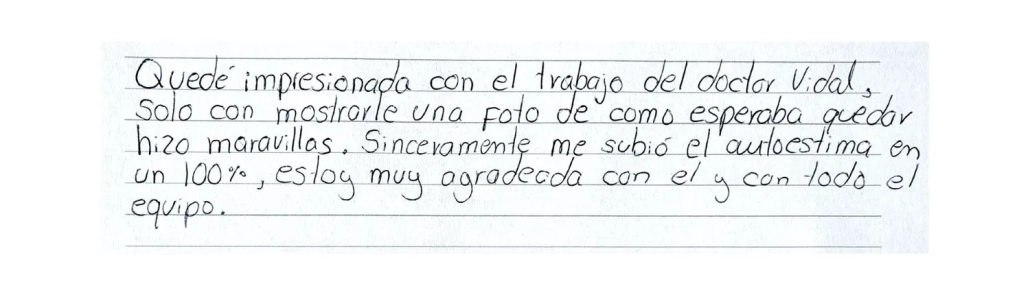 Quedé impresionada con el trabajo del doctor Vidal,
solo con mostrarle una foto de como esperaba quedar
hizo maravillas. Sinceramente me subió el autoestima en
un 100%, estoy muy agradecida con el y con todo el
equipo.